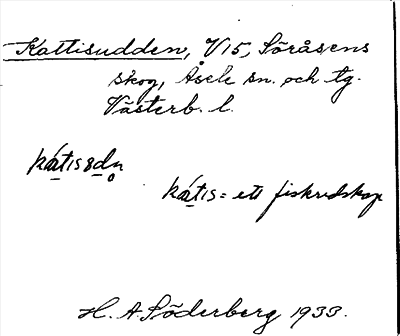 Kattisudden, V15, Söråsens
skog, Åsele sn. och tg.
Västerb. l.
kátis8dn
kátis = ett fiskredskap
H. A. Söderberg 1933.